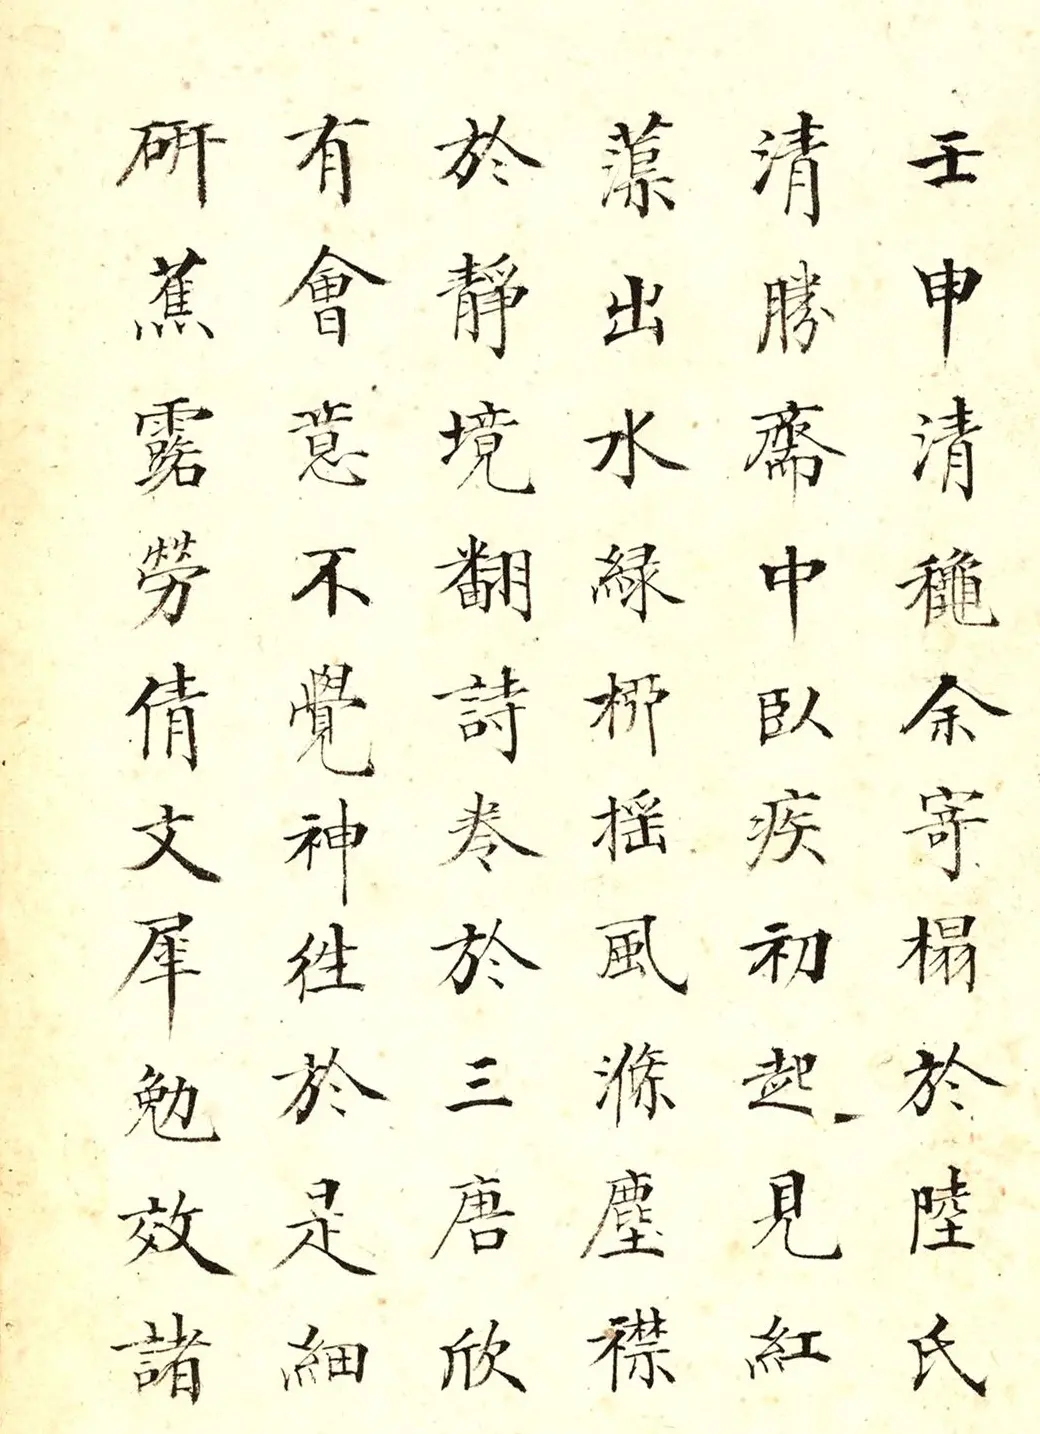 壬申清穐余寄榻於陸氏
清勝齋中臥疾初起見紅
蕖出水緑柳揺風滌塵襟
於靜境翻詩卷於三唐欣
有會意不覺神徃於是細
研蕉露勞倩文犀勉效諸